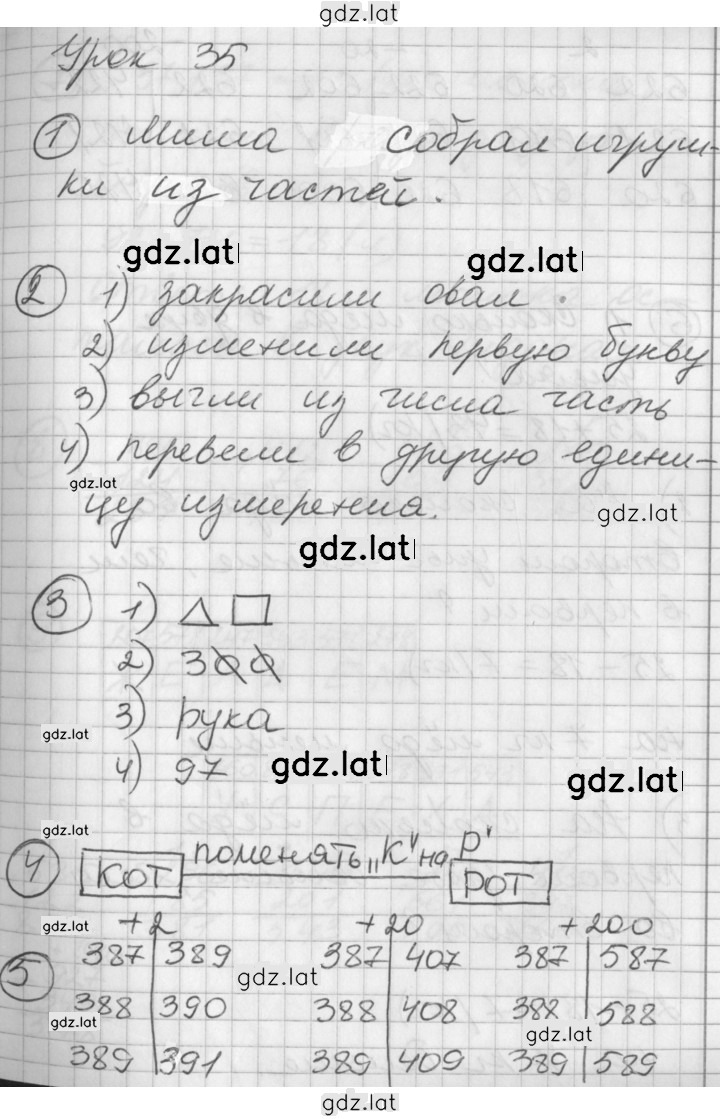 gdz.lat
Урок 35
1 Миша собрал игруш-
ки из частей.
gdz.lat gdz.lat
2 1) закрасили овал.
2) изменили первую букву
3) вычли из числа часть
4) перевели в другую едини-
gdz.lat
цу измерения.
gdz.lat
gdz.lat
3 1) △ □
2) 300
3) рука
gdz.lat
4) 97
gdz.lat gdz.lat
gdz.lat
4 КОТ поменять „К" на Р' РОТ
gdz.lat +2 +20 +200
5 387 389 387 407 387 587
gdz.lat
388 390 388 408 388 588
gdz.lat gdz.lat
389 391 389 409 389 589
gdz.lat